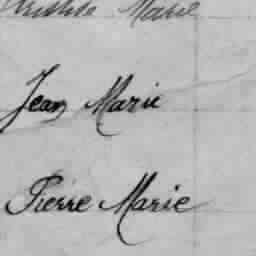 Marie
Jean Marie
Pierre Marie